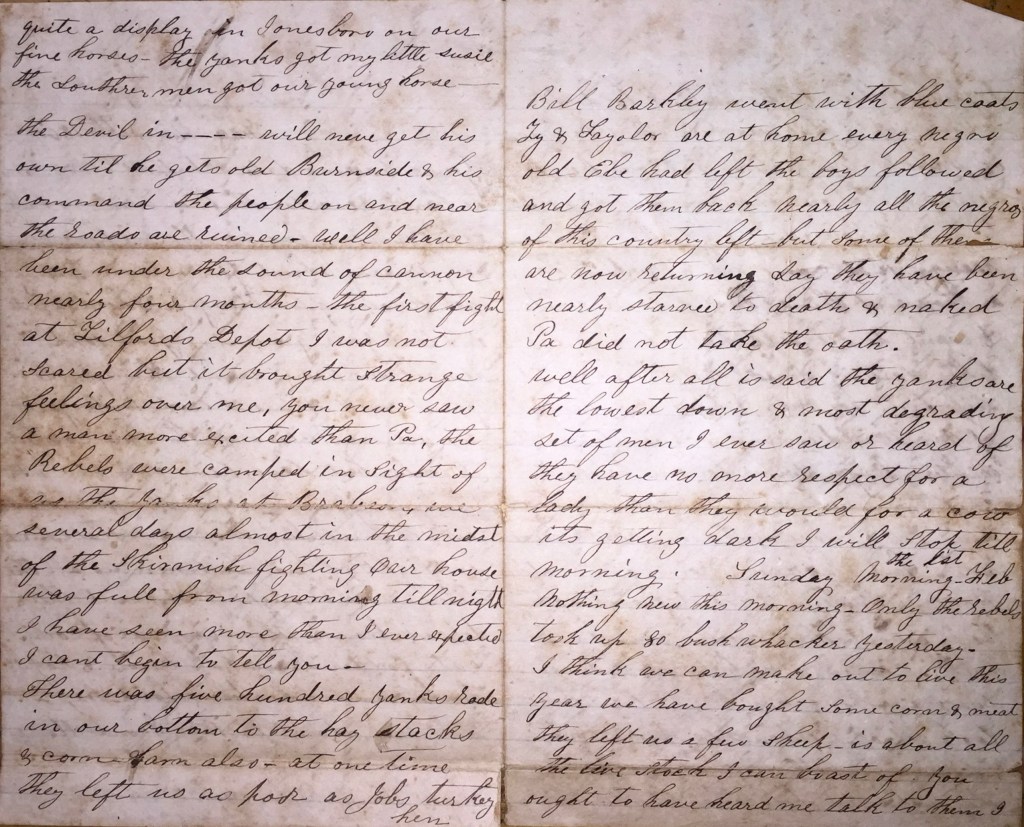 quite a display in Jonesboro on our
fine horses - the yanks got my little susie
the Southren men got our young horse -
the Devil in - - - - will neve get his
own til he gets old Burnside & his
command the people on and near
the roads are ruined - well I have
been under the sound of cannon
nearly four months - the first fight
at Tilfords Depot I was not
scared but it brought strange
feelings over me, you never saw
a man more excited than Pa, the
Rebels were camped in sight of
us the yanks at Brabsons we
several days almost in the midst
of the Skirmish fighting our house
was full from morning till night
I have seen more than I ever expected
I cant begin to tell you -
There was five hundred yanks rode
in our bottom to the hay stacks
& corn - barn also - at one time
they left us as poor as Jobs turkey
hen
Bill Barkley went with blue coats
Ty & Taylor are at home every negro
old Ebe had left the boys followed
and got them back nearly all the negros
of this country left - but some of them
are now returning say they have been
nearly starved to death & naked
Pa did not take the oath.
well after all is said the yanks are
the lowest down & most degrading
set of men I ever saw or heard of
they have no more respect for a
lady than they would for a cow
its getting dark I will stop till
morning. Sunday Morning - Feb
the 1st
Nothing new this morning - Only the rebels
took up 80 bush whacker yesterday -
I think we can make out to live this
year we have bought some corn & meat
they left us a few sheep - is about all
the live stock I can boast of. you
ought to have heard me talk to them I